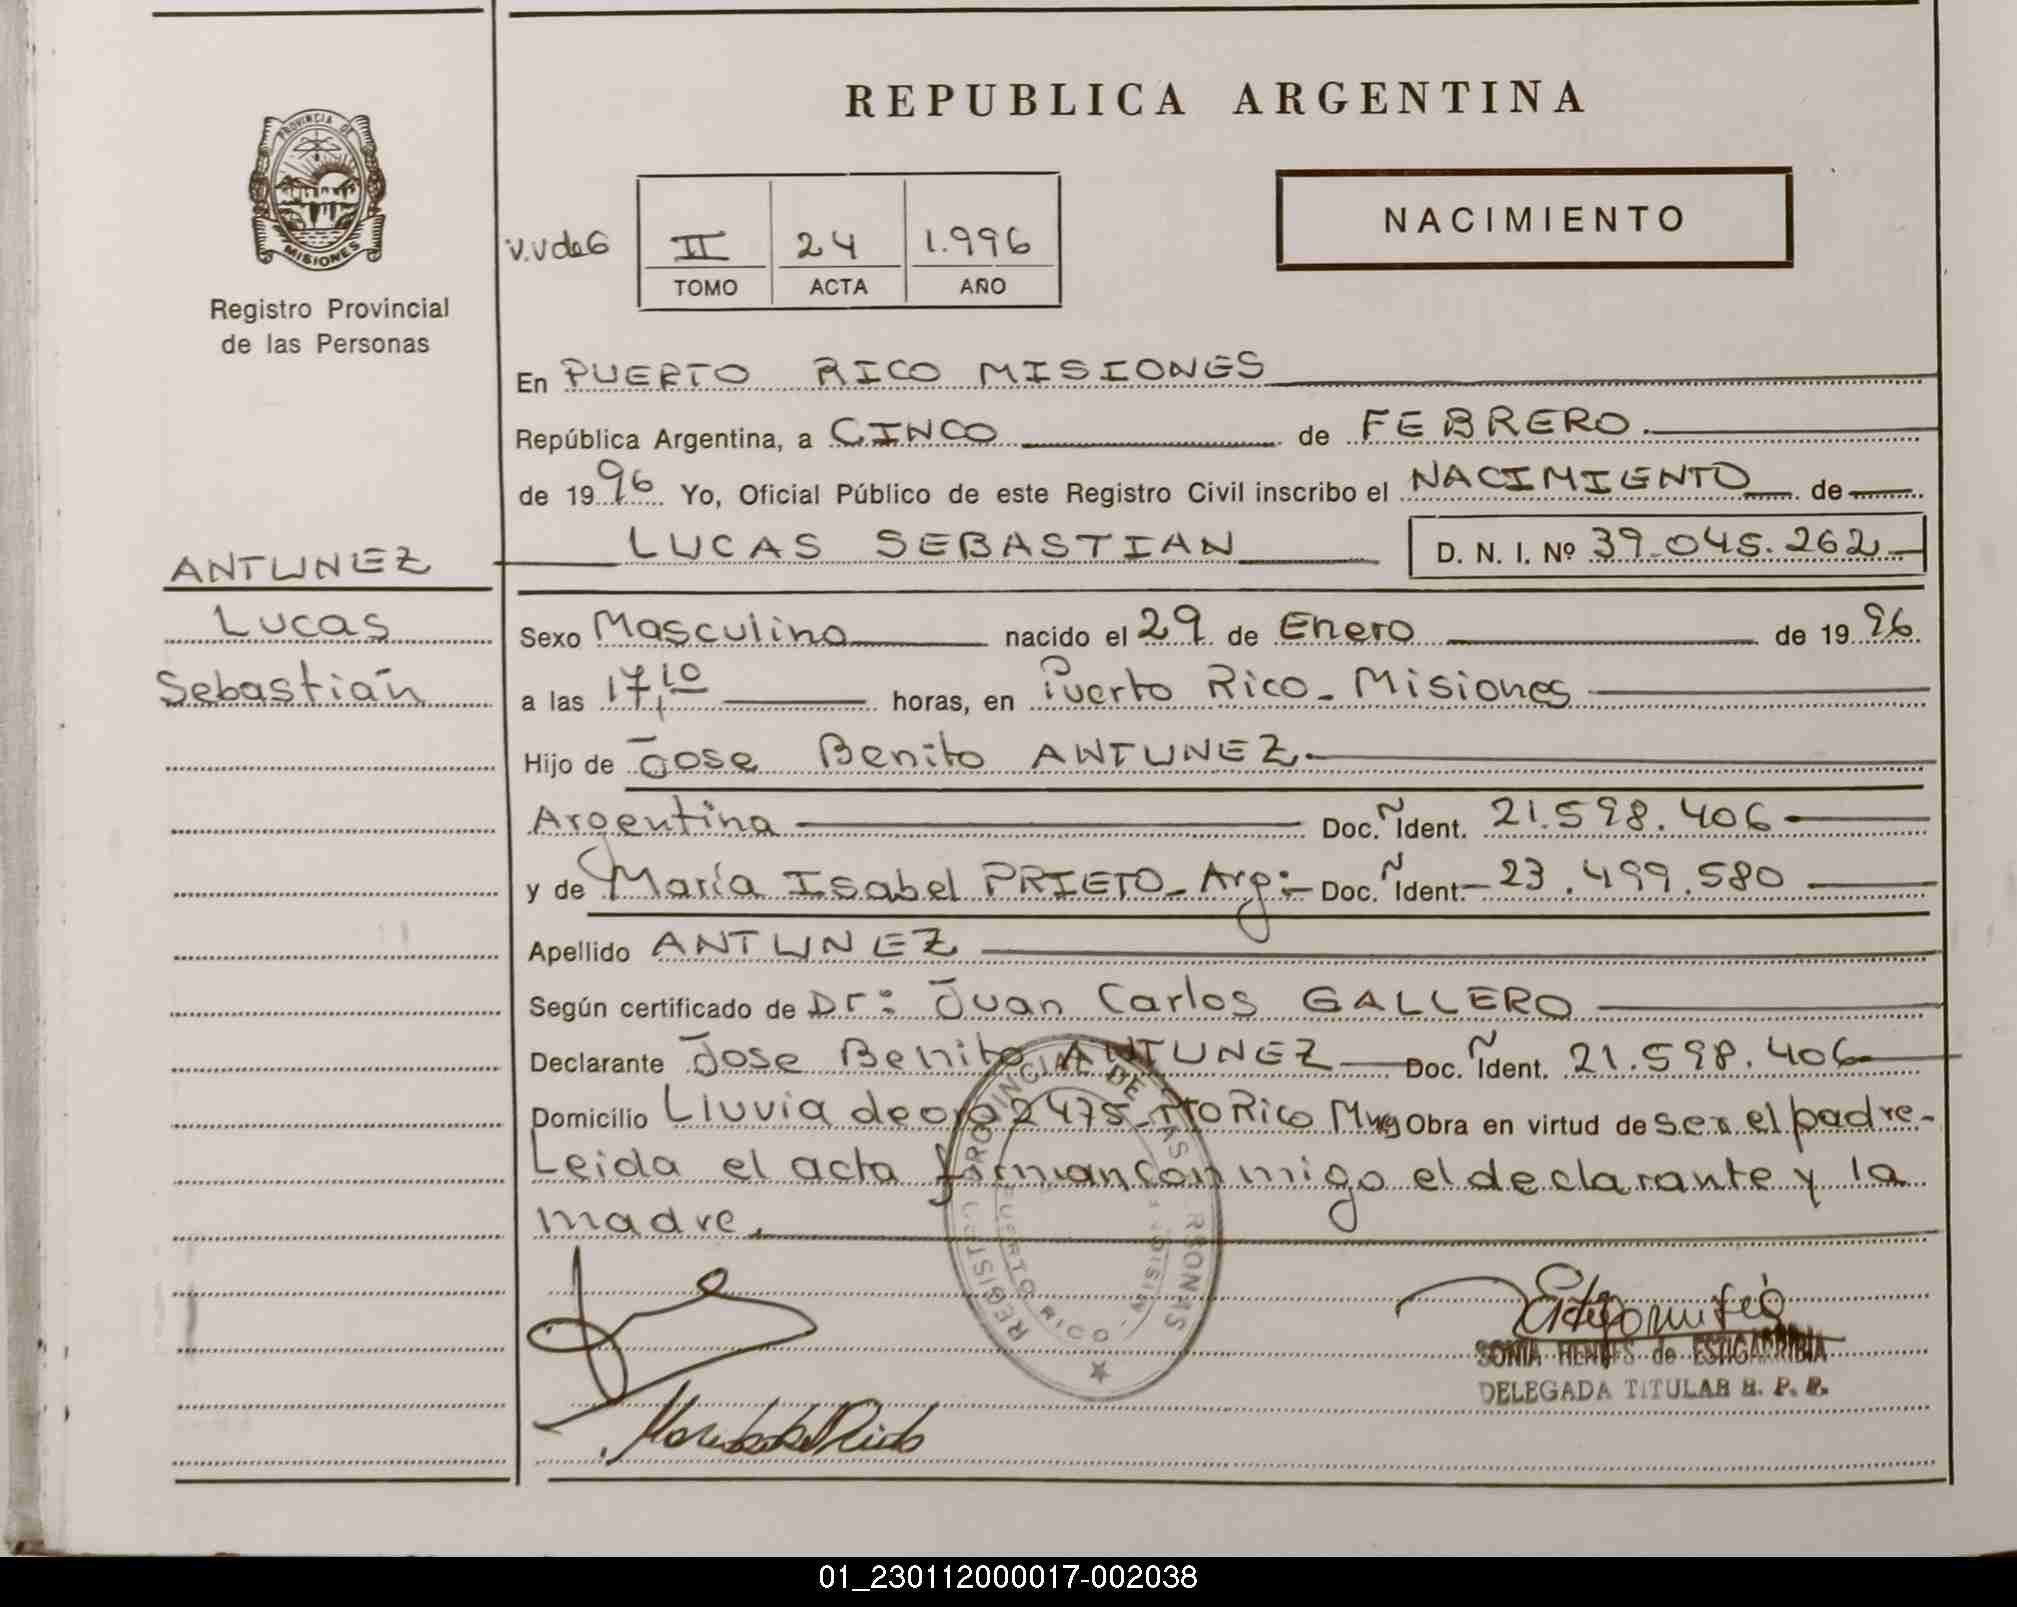 REPUBLICA ARGENTINA
PROVINCIA DE
MISIONES
Registro Provincial
de las Personas
NACIMIENTO
II 24 1.996
TOMO ACTA AÑO
En PUERTO RICO MISIONES
República Argentina, a CINCO de FEBRERO
de 1996 Yo, Oficial Público de este Registro Civil inscribo el NACIMIENTO de
LUCAS SEBASTIAN D. N. I. Nº 39.045.262
ANTUNEZ
Lucas
Sebastián
Sexo Masculino nacido el 29 de Enero de 1996
a las 17,10 horas, en Puerto Rico - Misiones
Hijo de Jose Benito ANTUNEZ
Argentina Doc. Ñ Ident. 21.598.406
y de María Isabel PRIETO - Arg: Doc. Ñ Ident. 23.499.580
Apellido ANTUNEZ
Según certificado de Dr: Juan Carlos GALLERO
Declarante Jose Benito ANTUNEZ Doc. Ñ Ident. 21.598.406
Domicilio Lluvia de oro 2475 - Pto Rico Mnes Obra en virtud de ser el padre-
Leida el acta firman conmigo el declarante y la
madre.
REGISTRO PROVINCIAL DE LAS PERSONAS
PUERTO RICO - MISIONES
SONIA HENDES de ESTIGARRIBIA
DELEGADA TITULAR R. P. P.
01_230112000017-002038